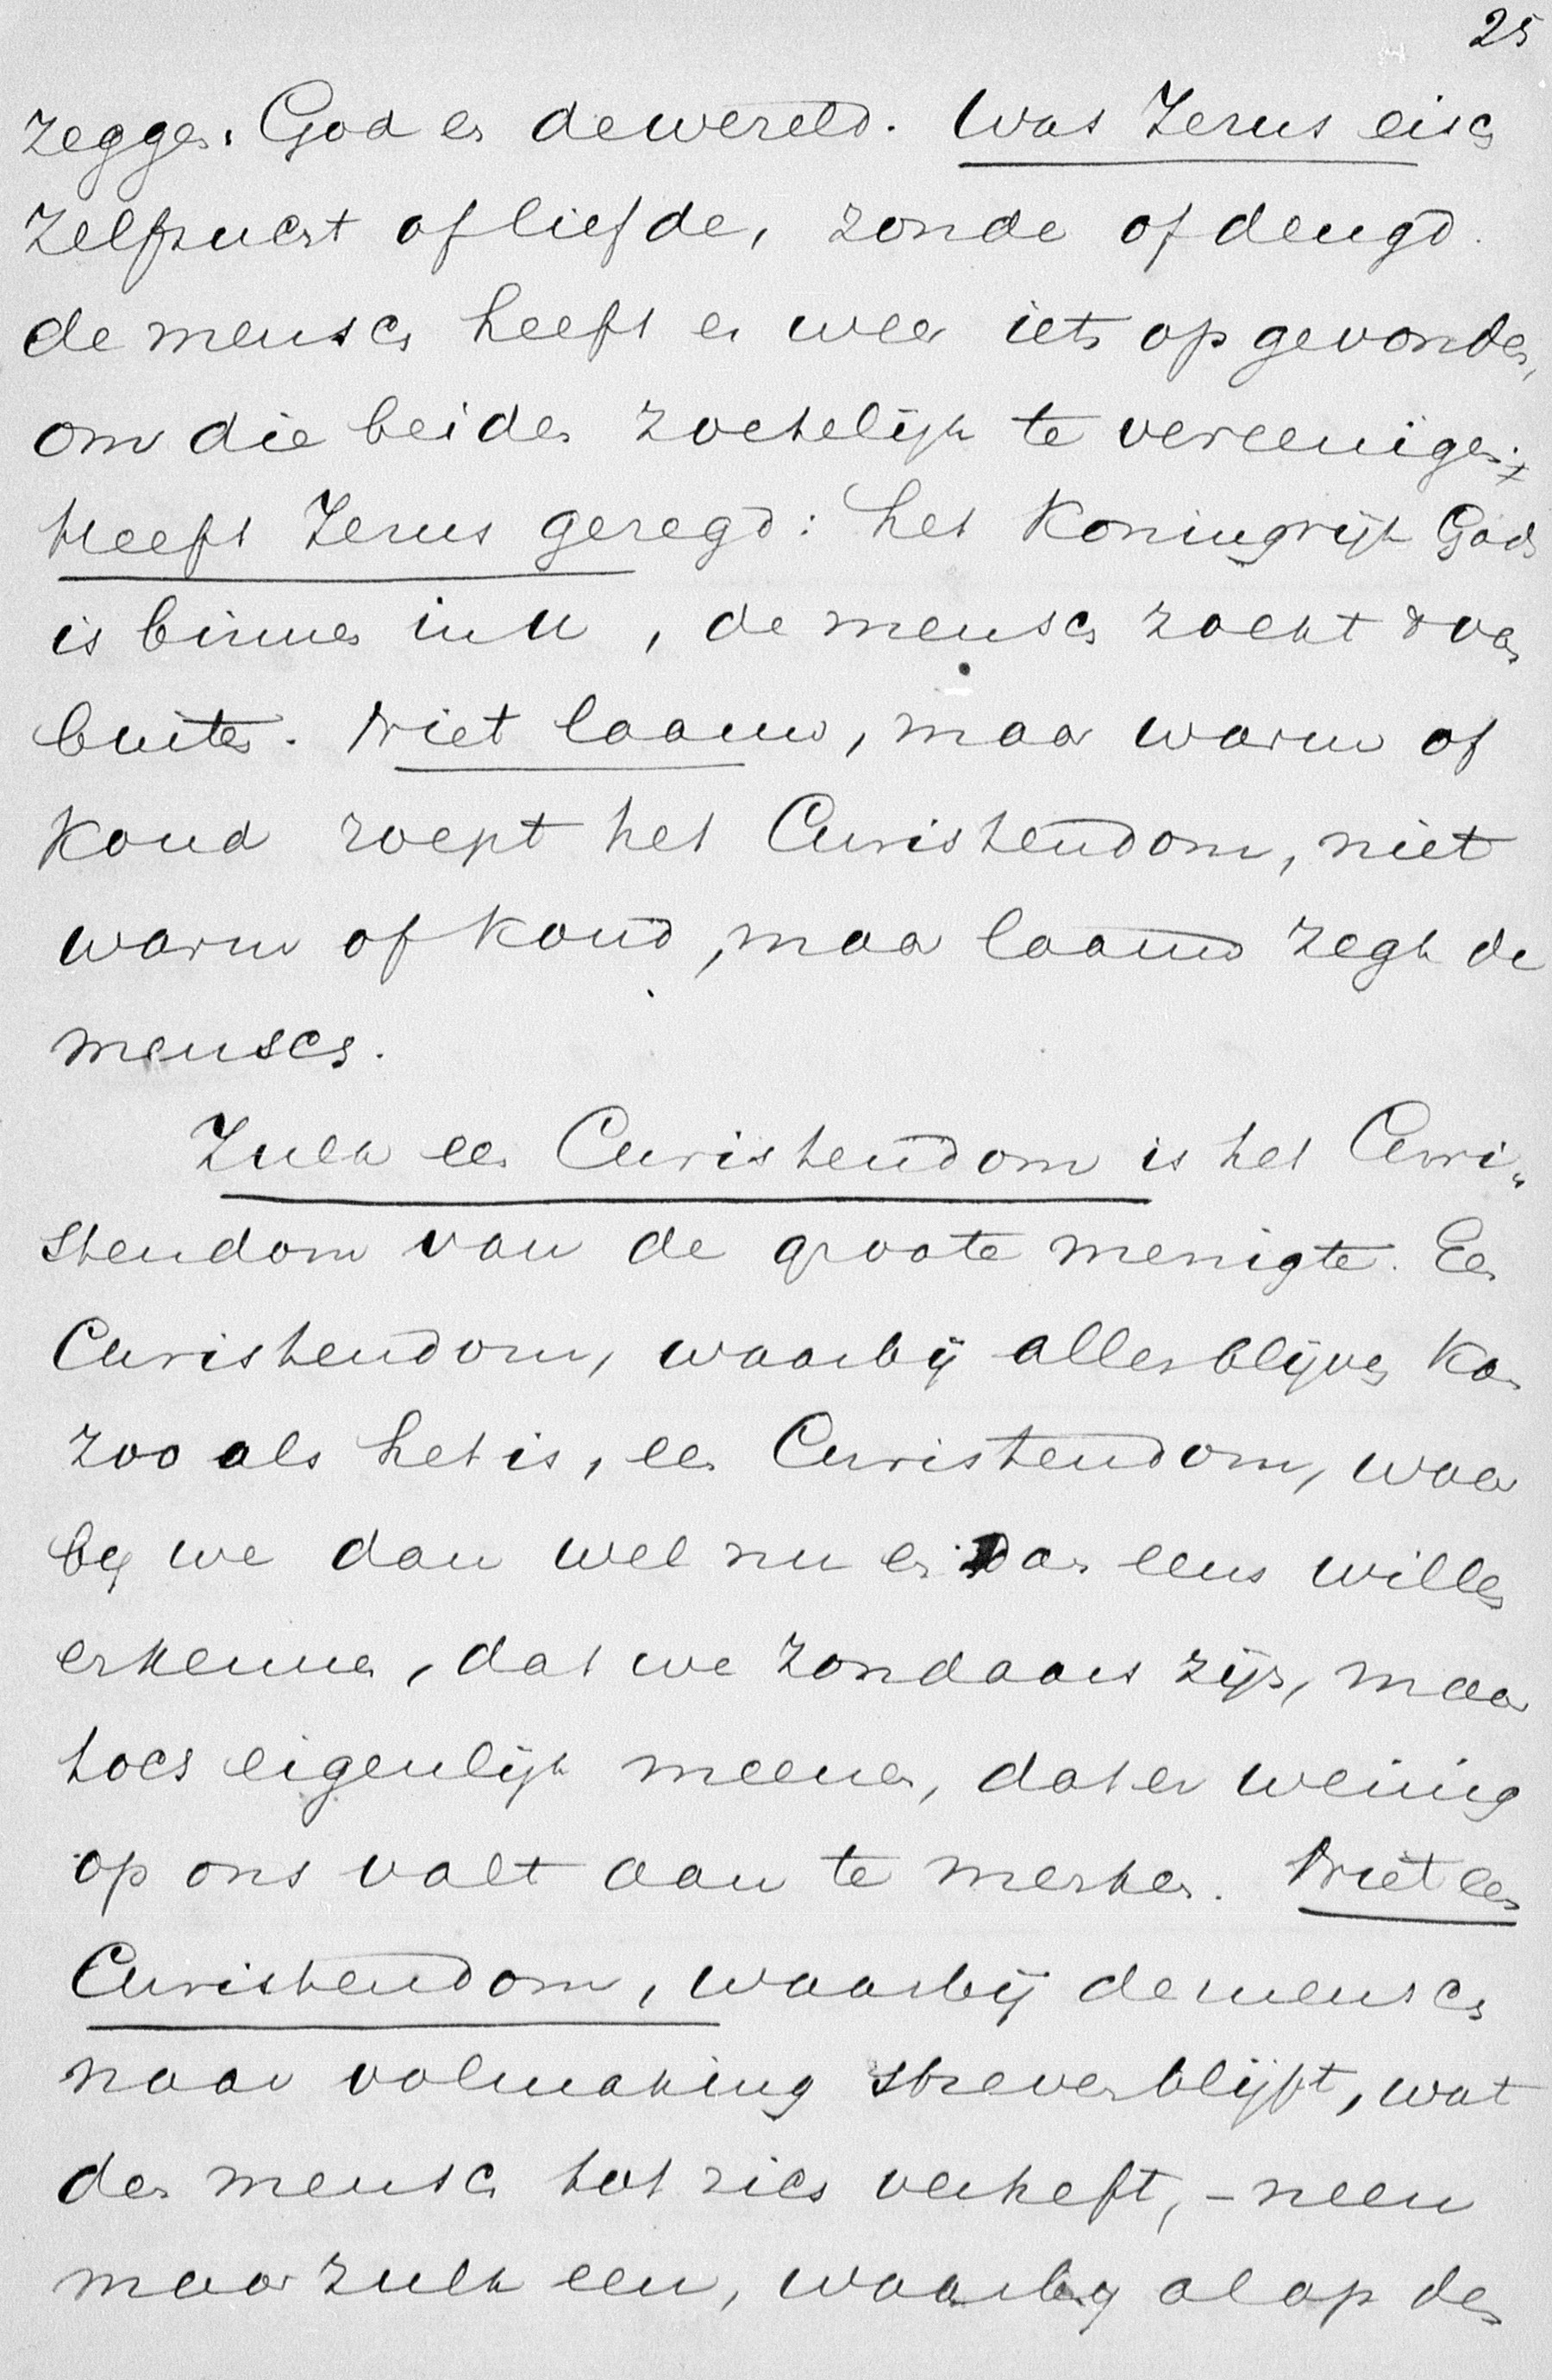 25
zeggen: God en de wereld. Was Jezus eisch
zelfzucht of liefde, zonde of deugd.
de mensch heeft er weer iets op gevonden,
om die beiden zoetelijk te vereenigen;
Heeft Jezus gezegd: het Koningrijk Gods
is binnen in u, de mensch zoekt 't van
buiten. Niet laauw, maar warm of
koud roept het Christendom, niet
warm of koud, maar laauw zegt de
mensch.
Zulk een Christendom is het Chri„
stendom van de groote menigte. Een
Christendom, waarbij alles blijven kan
zoo als het is, een Christendom, waar
bij we dan wel nu en dan eens willen
erkennen, dat we zondaars zijn, maar
toch eigenlijk meenen, dat er weinig
op ons valt aan te merken. Niet een
Christendom, waarbij de mensch
naar volmaking streven blijft, wat
den mensch tot zich verheft, – neen
maar zulk een, waarbij al op den